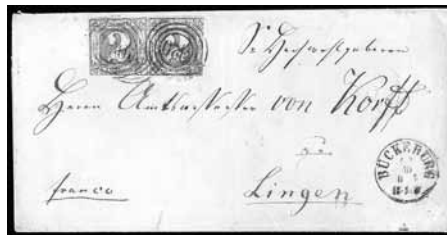 Sr Hochwohlgeboren
Herrn Amtsassessor von Korff
zu
Lingen
franco
BÜCKEBURG